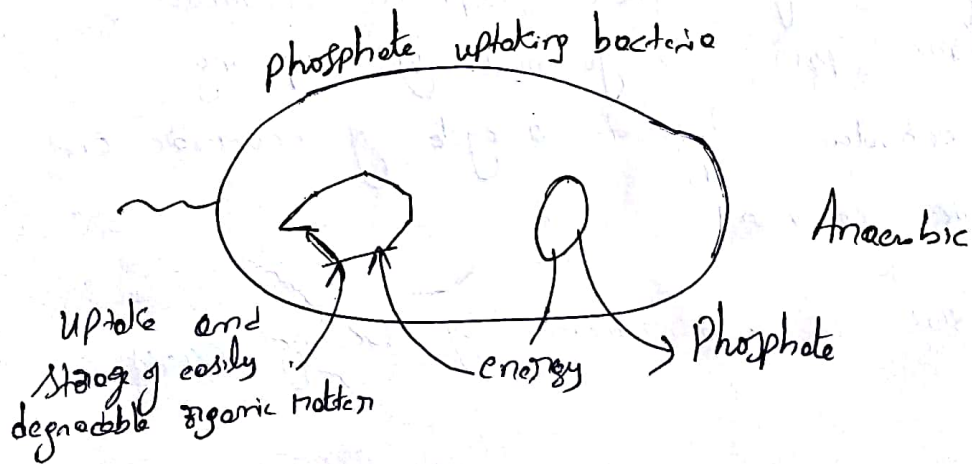 phosphate uptaking bacteria
Anaerobic
uptake and
storage of easily
degradable organic matter
energy
Phosphate